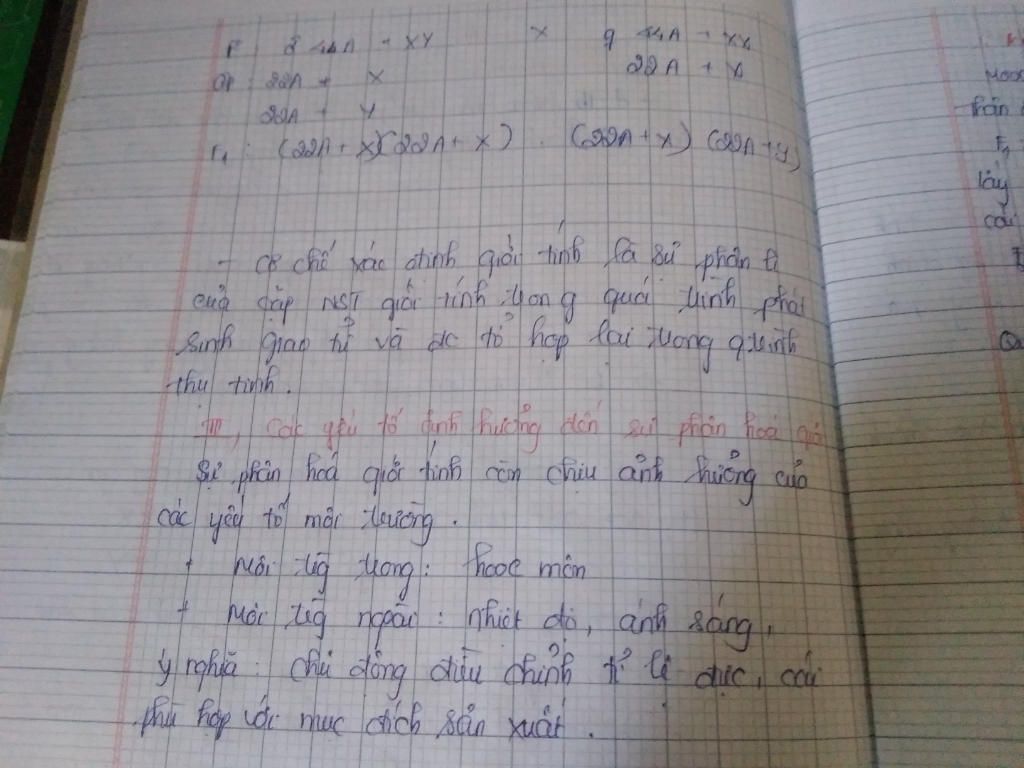 P : ♂ 44A + XY × ♀ 44A + XX
GP : 22A + X 22A + X
22A + Y
F1 : (22A + X)(22A + X) . (22A + X) (22A + Y)
- cơ chế xác định giới tính là sự phân li
của cặp NST giới tính trong quá trình phát
sinh giao tử và đc tổ hợp lại trong q.trình
thụ tinh.
III, Các yếu tố ảnh hưởng đến sự phân hoá giới
Sự phân hoá giới tính còn chịu ảnh hưởng của
các yếu tố môi trường.
+ Môi trg trong: hooc môn
+ Môi trg ngoài: nhiệt độ, ánh sáng,
ý nghĩa: chủ động điều chỉnh tỉ lệ đực, cái
phù hợp với mục đích sản xuất.
phân
F1
lấy